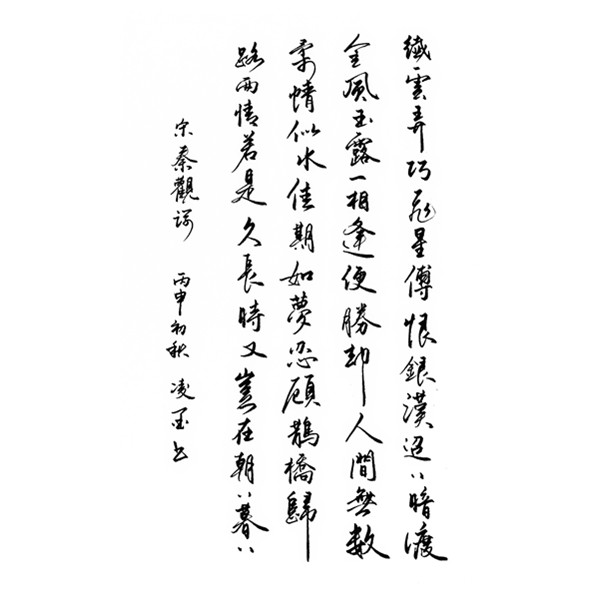 纖雲弄巧飛星傳恨銀漢迢々暗渡
金風玉露一相逢便勝却人間無數
柔情似水佳期如夢忍顧鵲橋歸
路兩情若是久長時又豈在朝々暮々
宋秦觀詞 丙申初秋 凌书